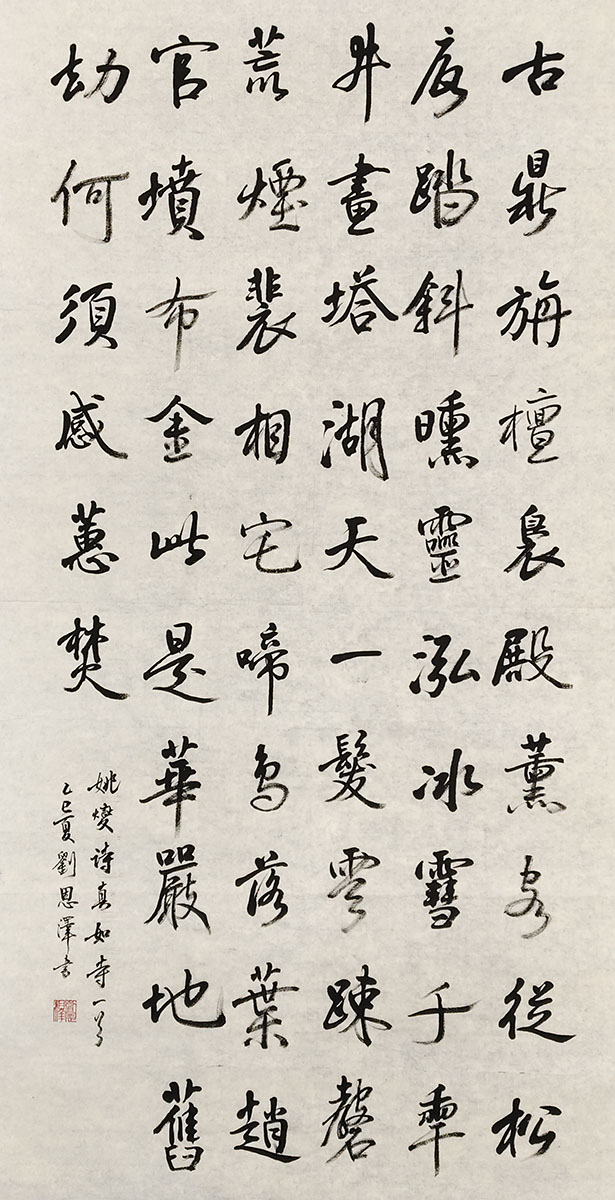 古鼎旃檀裊殿薰客從松
度踏斜曛靈泓冰雪千
井畫塔湖天一髮雲踈磬
荒煙裴相宅啼鳥落葉趙
官墳布金此是華嚴地舊
劫何須感蕙焚
姚燮詩真如寺一首
乙巳夏劉恩澤書